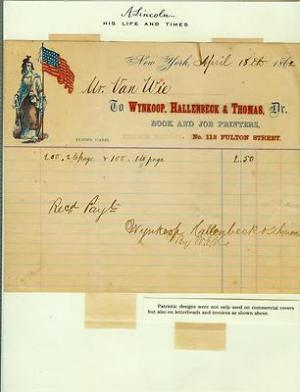 A. Lincoln
HIS LIFE AND TIMES
New York, April 18th 1862
Mr. Van Wie
To WYNKOOP, HALLENBECK & THOMAS, Dr.
BOOK AND JOB PRINTERS,
No. 113 FULTON STREET.
200, 2/6 page & 100. 1/6 page 2.50
Recd Payt
Wynkoop Hallenbeck & Thomas
Patriotic designs were not only used on commercial covers
but also on letterheads and invoices as shown above.